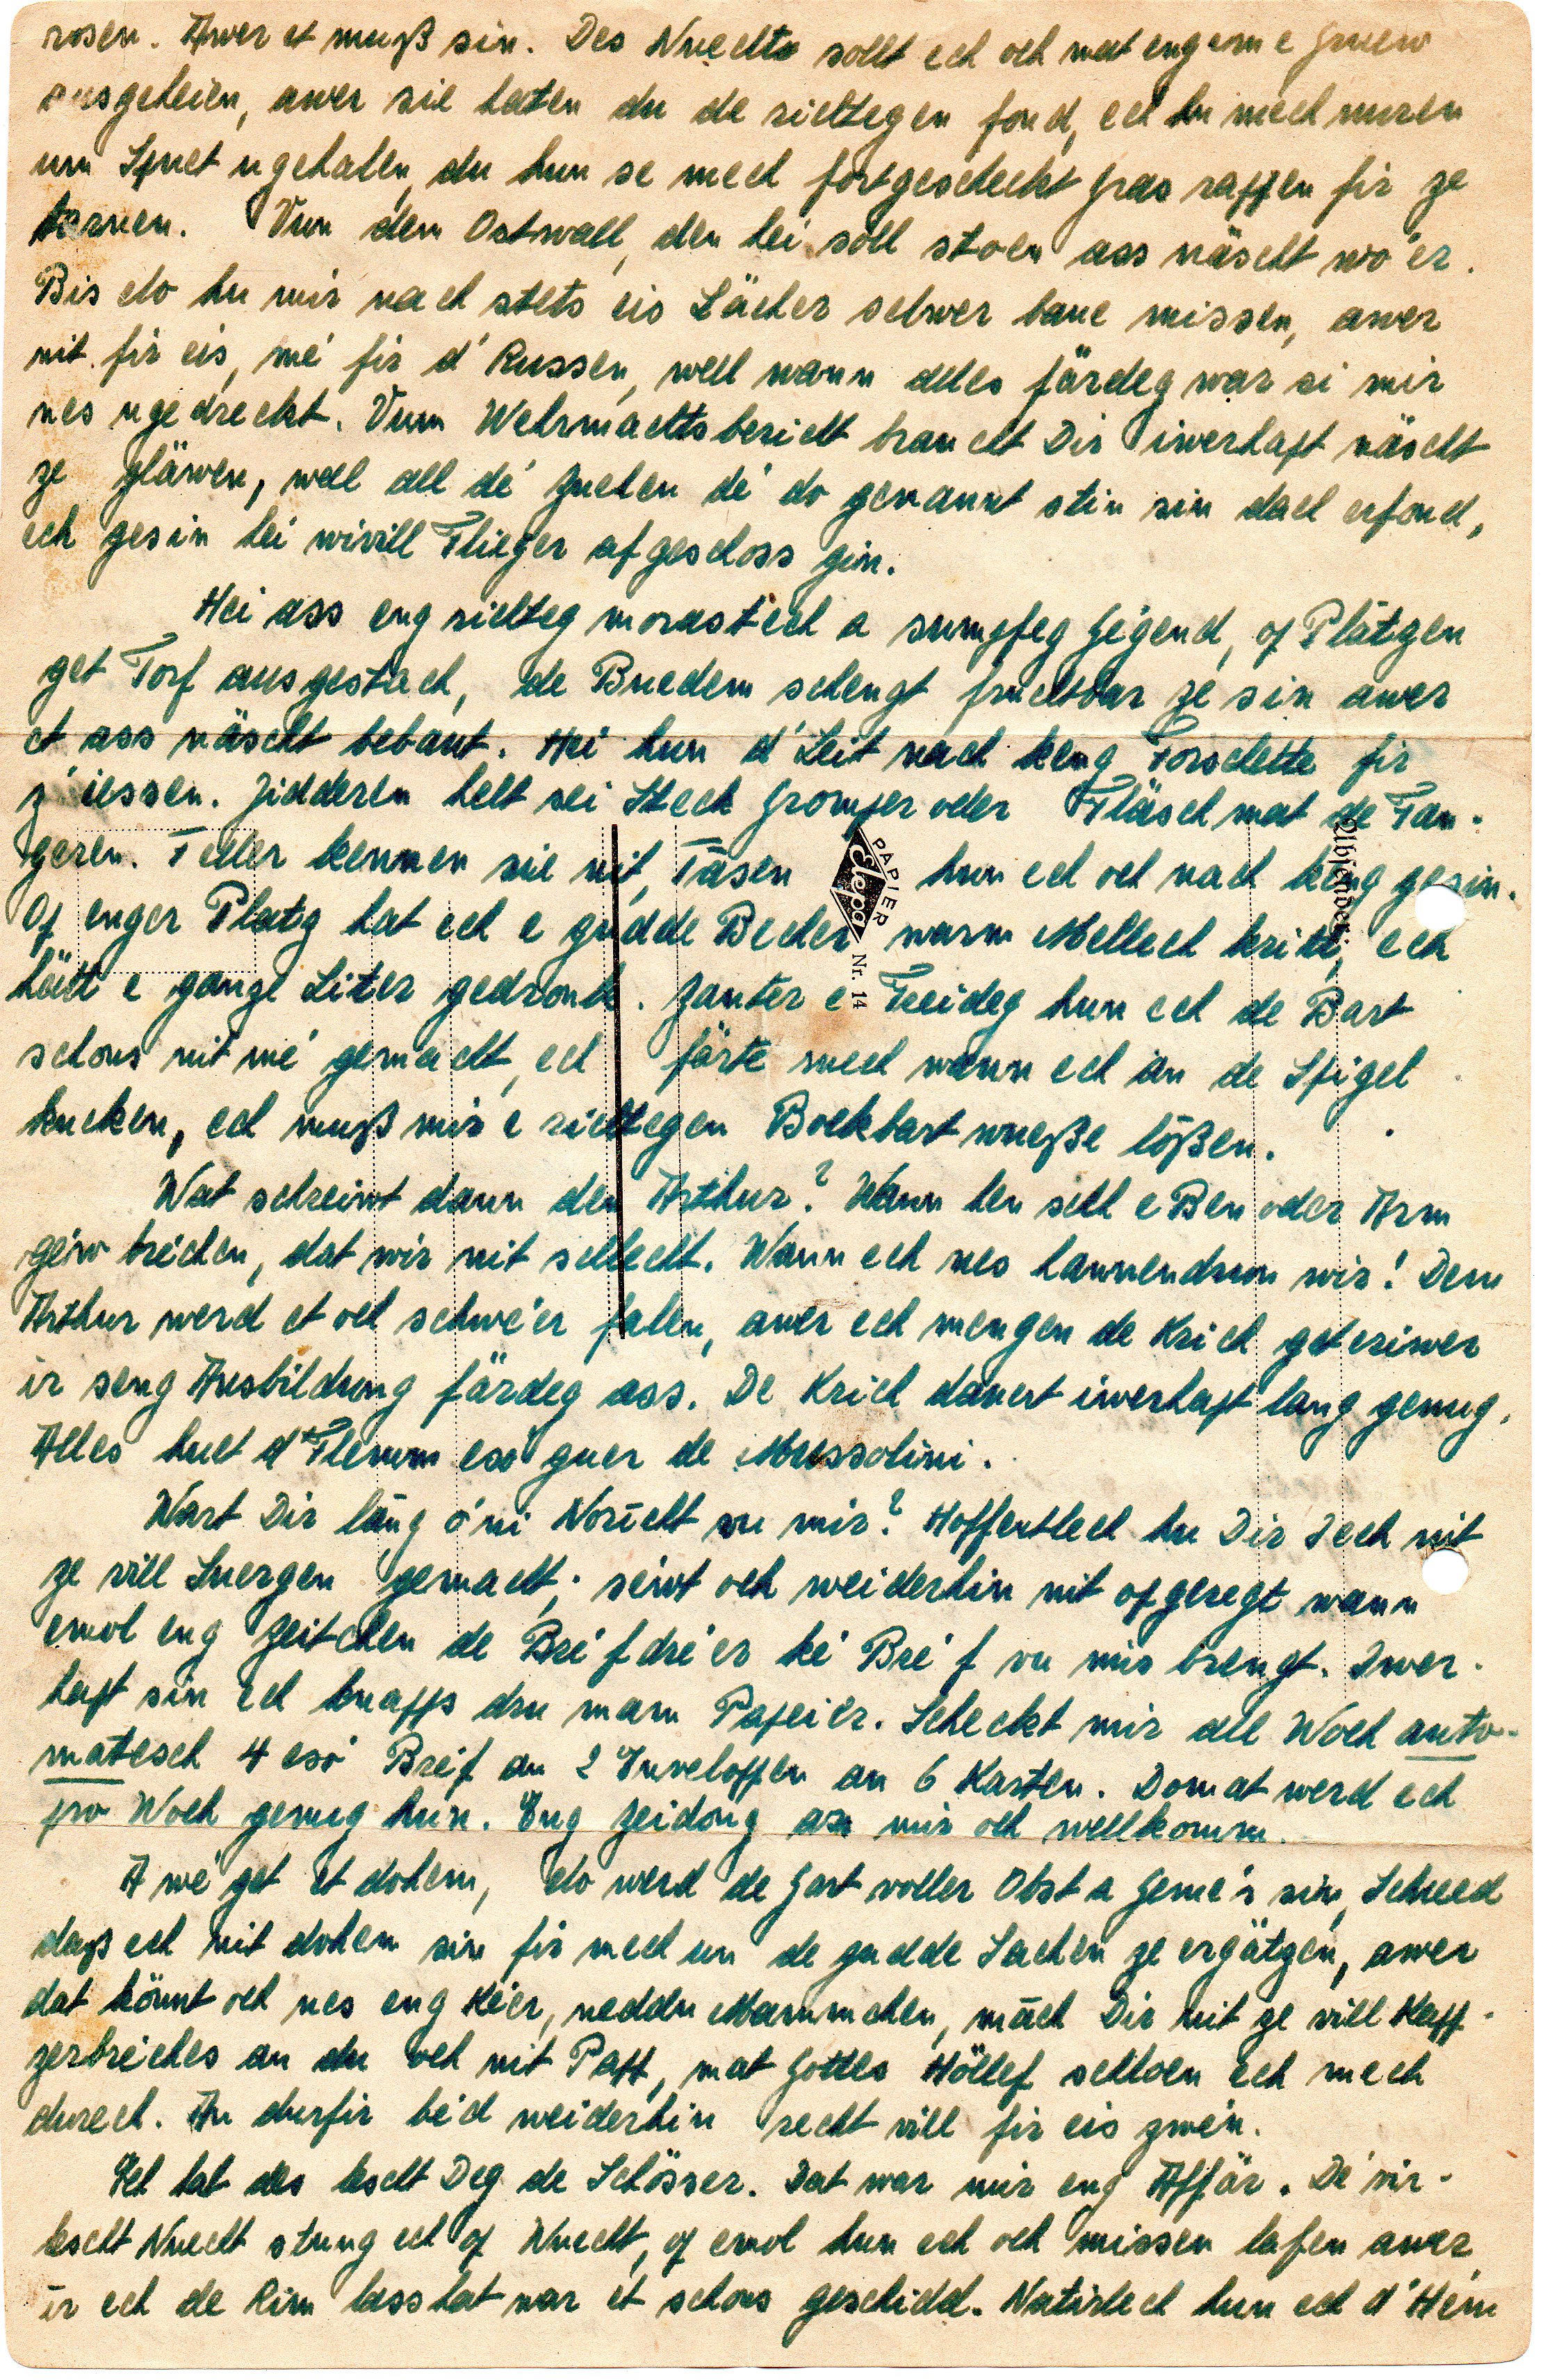 rosen. Awer et muß sin. Des Nuechts sollt ech och mat engem e Gruew
ausgeheien, awer sie haten du de richtegen fond, ech hu mech missen
um Spuet ugehalen, du hun se mech fortgescheckt Gras raffen fir ze
tarnen. Vun dem Ostwall, den hei soll stoen ass näscht wo'er.
Bis elo hu mir nach stets eis Lächer selwer baue missen, awer
nit fir eis, mé fir d'Russen, well wann alles färdeg war si mir
nes ugedreckt. Vum Wehrmachtsbericht braucht Dir iwerhapt näscht
ze gläwen, well all dé Zuelen dé do genannt stin sin dach erfond,
ech gesin hei wivill Flieger ofgeschoss gin.
Hei ass eng richteg morastech a sumpfeg Gégend, op Plätzen
get Torf ausgestach, de Buedem schengt fruchtbar ze sin awer
et ass näscht bebaut. Hei hun d'Leit nach keng Forschette fir
z'iessen. Jidderen helt sei Steck Gromper oder Fläsch mat de Fan-
geren. Teller kennen sie nit, Tasen hun ech och nach keng gesin.
Op enger Platz hat ech e gudde Becher warm Mellech kritt, ech
hätt e ganze Liter gedronk. Zanter e Freideg hun ech de Bart
schons nit mé gemacht, ech färte mech wann ech an de Spigel
kucken, ech muß mir e richtegen Bockbart wueße lößen.
Wat schreiwt dann den Arthur? Wann hen sech e Ben oder Arm
géiw briechen, dat wir nit schlecht. Wann ech nes hannendrun wir! Dem
Arthur werd et och schwe'er falen, awer ech mengen de Krich get eriwer
ir seng Ausbildung färdeg ass. De Krich dauert iwerhapt lang genug.
Alles huet d'Flemm esó guer de Mussolini.
Wart Dir lang o'ni Noricht vu mir? Hoffentlech hu Dir Iech nit
ze vill Suergen gemacht; seiwt och weiderhin nit opgeregt wann
emol eng Zeitchen de Bréifdréier ké Bréif vu mir brengt. Iwer-
hapt sin ech knapps dru mam Papeier. Scheckt mir all Woch auto-
matesch 4 esó Bréif an 2 Enveloppen an 6 Karten. Domat werd ech
pro Woch genug hun. Eng Zeidong ass mir och wellkomm.
A wé get et dohem, elo werd de Gart voller Obst a Geméis sin, Schued
daß ech nit dohem sin fir mech un de gudde Sachen ze ergätzen, awer
dat könnt och nes eng Kéier, neddu Mammchen, mäch Dir nit ze vill Kapp-
zerbriches an du och nit Papp, mat Gottes Höllef schloen ech mech
durech. An durfir béid weiderhin recht vill fir eis zwén.
Ech hat des lescht Deg de Schösser. Dat war mir eng Affär. Dé vir-
lescht Nuecht stung ech op Wuecht, op emol hun ech och missen lafen awer
ir ech de Rim lass hat war et schons geschidd. Natirlech hun ech d'Hém
Absender:
PAPIER
Elepa
Nr. 14